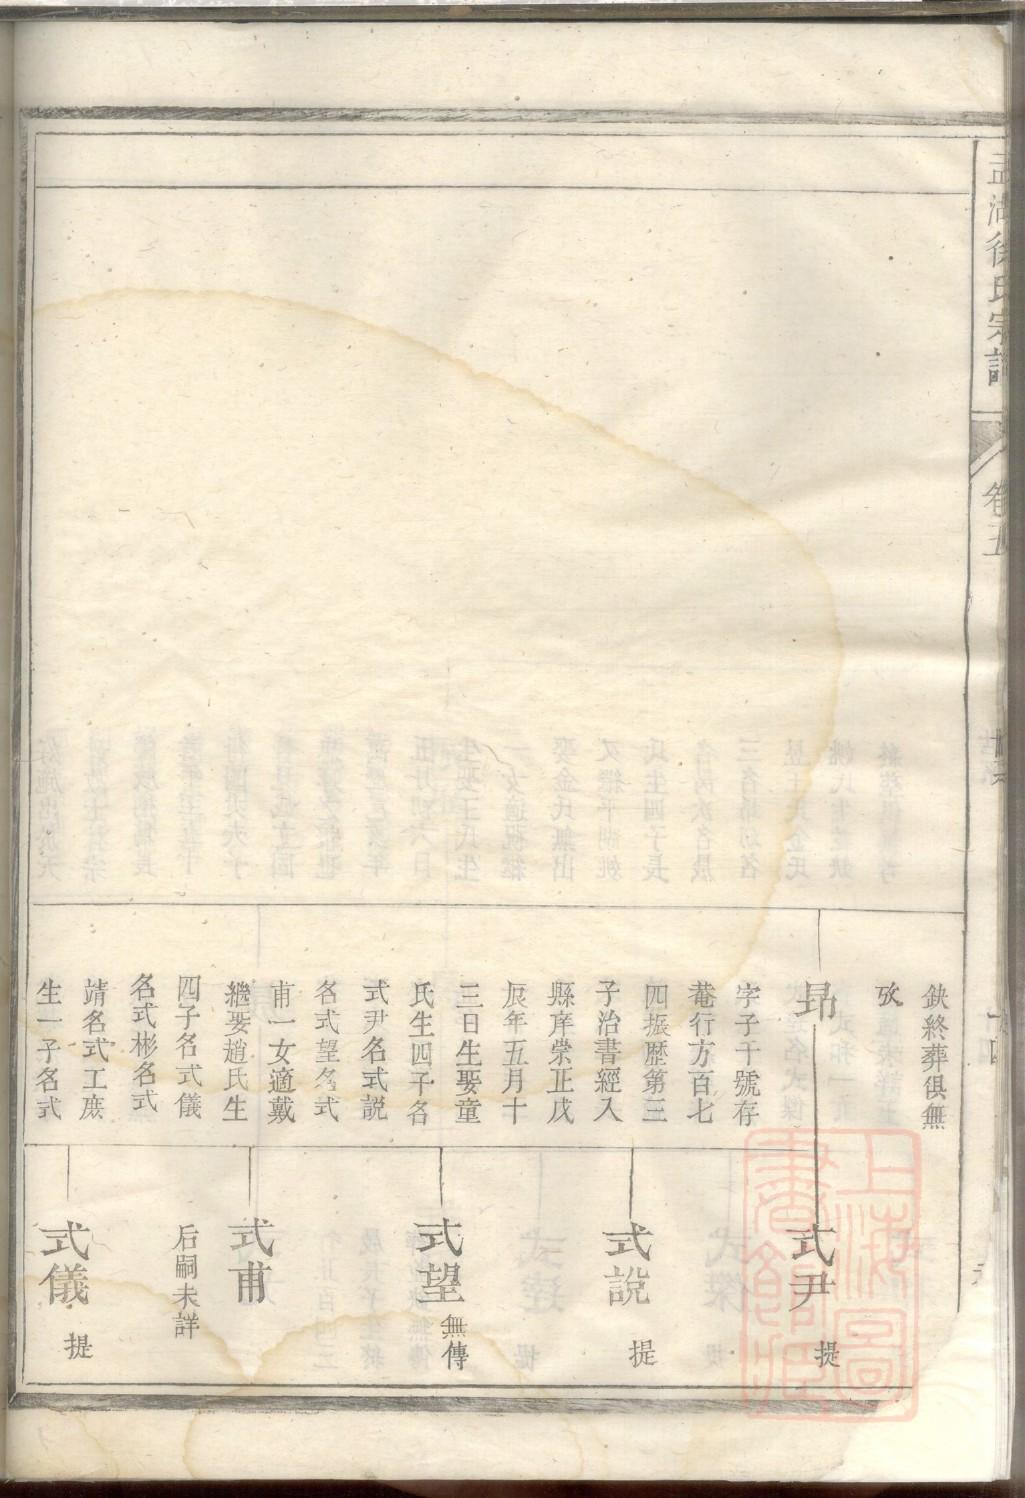 孟湖徐氏宗譜
卷五
缺終葬俱無
攷
昻
字子千號存
菴行方百七
四振歷第三
子治書經入
縣庠崇正戊
辰年五月十
三日生娶童
氏生四子名
式尹名式說
名式望名式
甫一女適戴
繼娶趙氏生
四子名式儀
名式彬名式
靖名式工庶
生一子名式
式尹 提
式說 提
式望 無傳
式甫
后嗣未詳
式儀 提
上海圖書館藏